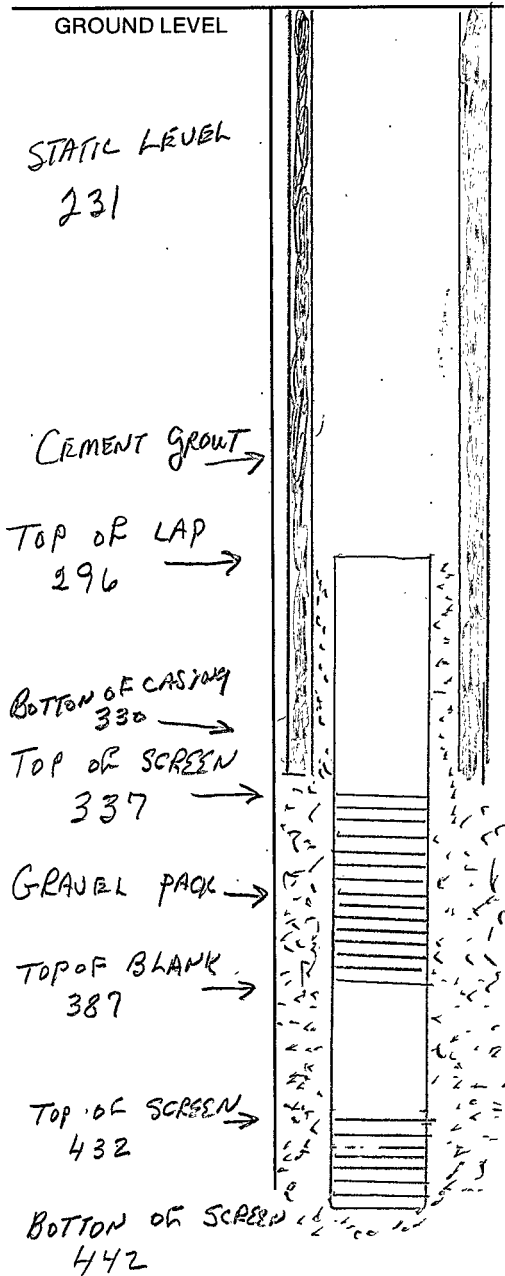 GROUND LEVEL
STATIC LEVEL
231
CEMENT GROUT
TOP OF LAP
296
BOTTON OF CASING
330
TOP OF SCREEN
337
GRAVEL PACK
TOP OF BLANK
387
TOP OF SCREEN
432
BOTTON OF SCREEN
442